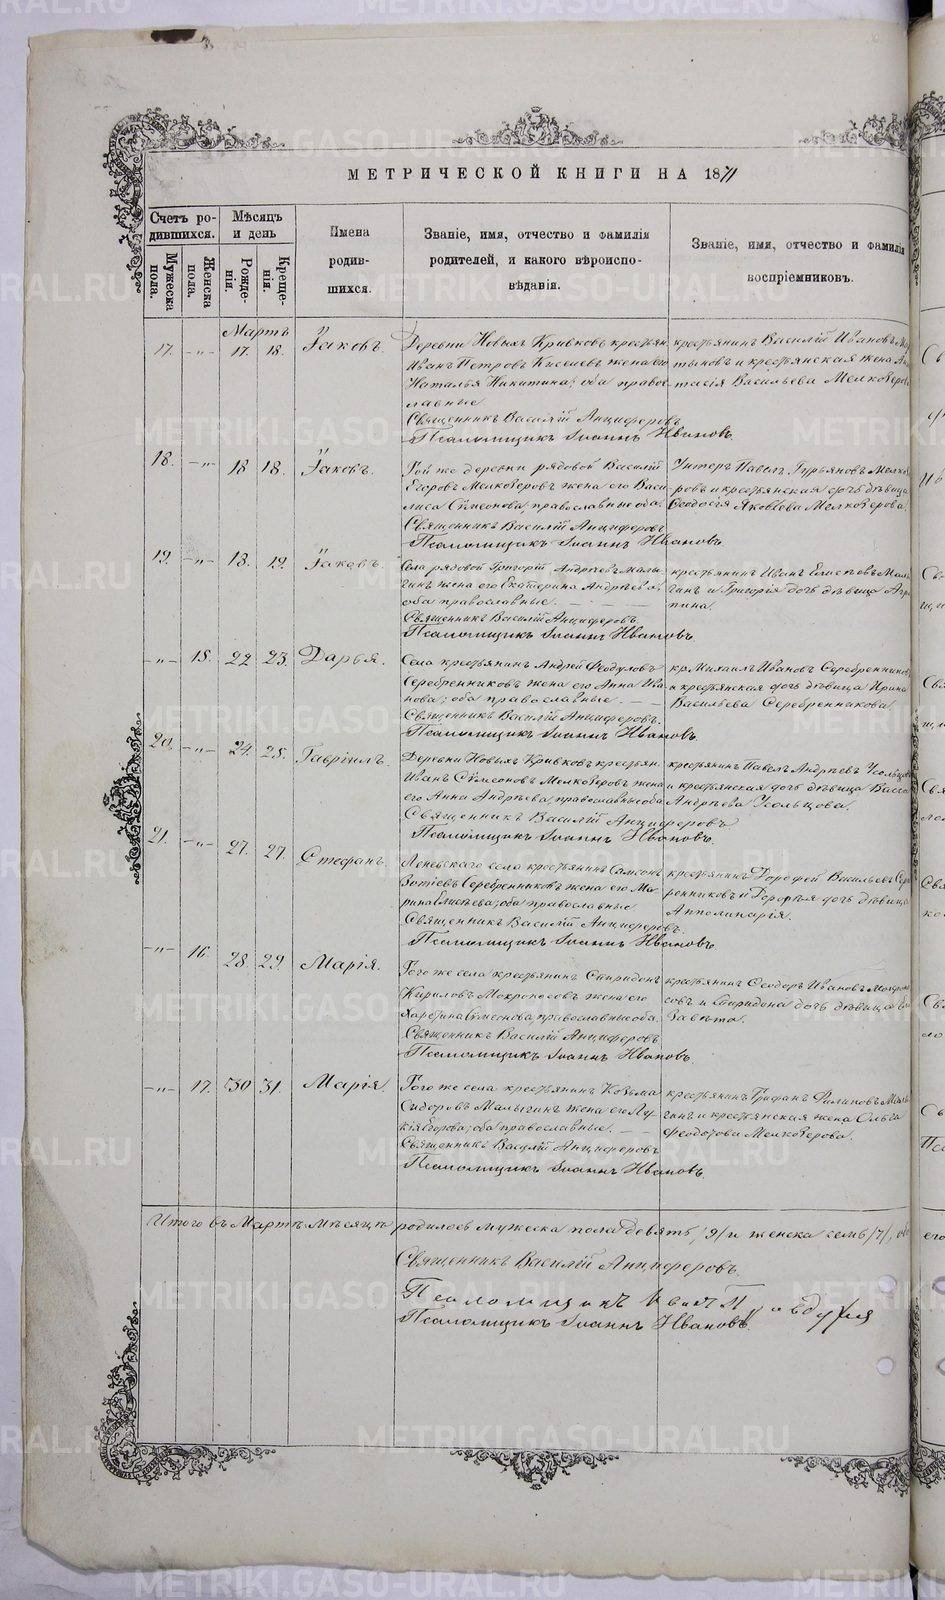 МЕТРИЧЕСКОЙ КНИГИ НА 1871
Счетъ ро-
дившихся.
Мужеска пола.
Женска пола.
Мѣсяцъ
и день
Рожде-
нія.
Креще-
нія.
Имена
родив-
шихся.
Званіе, имя, отчество и фамилія
родителей, и какого вѣроиспо-
вѣданія.
Званіе, имя, отчество и фамилія
воспріемниковъ.
Мартъ
17. -„- 17. 18. Іаковъ.
Деревни Новыхъ Кривковъ крестьян.
Иванъ Петровъ жена его
Наталья Никитина; оба право-
славные
Священникъ Василій Анциферовъ
Псаломщикъ Іоаннъ Ивановъ.
крестьянинъ Василій Ивановъ
и крестьянская жена
Васильева Мелкозерова
18. -„- 18 18. Іаковъ.
Той же деревни рядовой Василій
Егоровъ Мелкозеровъ жена его Васи-
лиса Сѵмеонова, православные оба.
Священникъ Василій Анциферовъ
Псаломщикъ Іоаннъ Ивановъ.
Унтеръ Павелъ Гурьяновъ Мелкозе-
ровъ и крестьянская дочь дѣвица
Ѳеодосія Яковлева Мелкозерова.
19. -„- 18. 19. Іаковъ.
Села рядовой Григорій Андреевъ Малы-
гинъ жена его Екатерина Андрѣева;
оба православные.
Священникъ Василій Анциферовъ
Псаломщикъ Іоаннъ Ивановъ.
крестьянинъ Иванъ Малы-
гинъ и Григорія дочь дѣвица Агри-
пина.
-„- 15. 22 23. Дарья.
Села крестьянинъ Андрей Ѳеодуловъ
Серебренниковъ жена его Анна Ива-
нова; оба православные.
Священникъ Василій Анциферовъ.
Псаломщикъ Іоаннъ Ивановъ.
кр. Михаилъ Ивановъ Серебренниковъ
и крестьянская дочь дѣвица Ирина
Васильева Серебренникова
20. -„- 24. 25. Гавріилъ.
Деревни Новыхъ Кривковъ крестьян.
Иванъ Сѵмеоновъ Мелкозеровъ жена
его Анна Андрѣева, православные оба
Священникъ Василій Анциферовъ.
Псаломщикъ Іоаннъ Ивановъ.
крестьянинъ Павелъ Андрѣевъ Усольцовъ
и крестьянская дочь дѣвица Васса
Андрѣева Усольцова.
21. -„- 27. 27. Стефанъ.
Леневскаго села крестьянинъ Самсонъ
Зотіевъ Серебренниковъ жена его Ма-
рина; оба православные
Священникъ Василій Анциферовъ.
Псаломщикъ Іоаннъ Ивановъ
крестьянинъ Дорофей Васильевъ Сереб-
ренниковъ и дочь дѣвица
Апполинарія.
-„- 16. 28. 29. Марія.
Того же села крестьянинъ Спиридонъ
Кириловъ Мокроносовъ жена его
Харетина Сѵмеонова, православные оба.
Священникъ Василій Анциферовъ
Псаломщикъ Іоаннъ Ивановъ.
крестьянинъ Ѳеодоръ Ивановъ Мокроно-
совъ и Спиридона дочь дѣвица Ели-
завета.
-„- 17. 30 31. Марія
Того же села крестьянинъ Козьма
Сидоровъ Малыгинъ жена его Лу-
кія Егорова; оба православные.
Священникъ Василій Анциферовъ
Псаломщикъ Іоаннъ Ивановъ.
крестьянинъ Трифанъ Филиповъ Малы-
гинъ и крестьянская жена Ольга
Ѳеодотова Мелкозерова.
Итого въ Мартѣ мѣсяцѣ родилось мужеска пола девять /9/ и женска семь /7/,
Священникъ Василій Анциферовъ.
Псаломщикъ
Псаломщикъ Іоаннъ Ивановъ.
METRIKI.GASO-URAL.RU